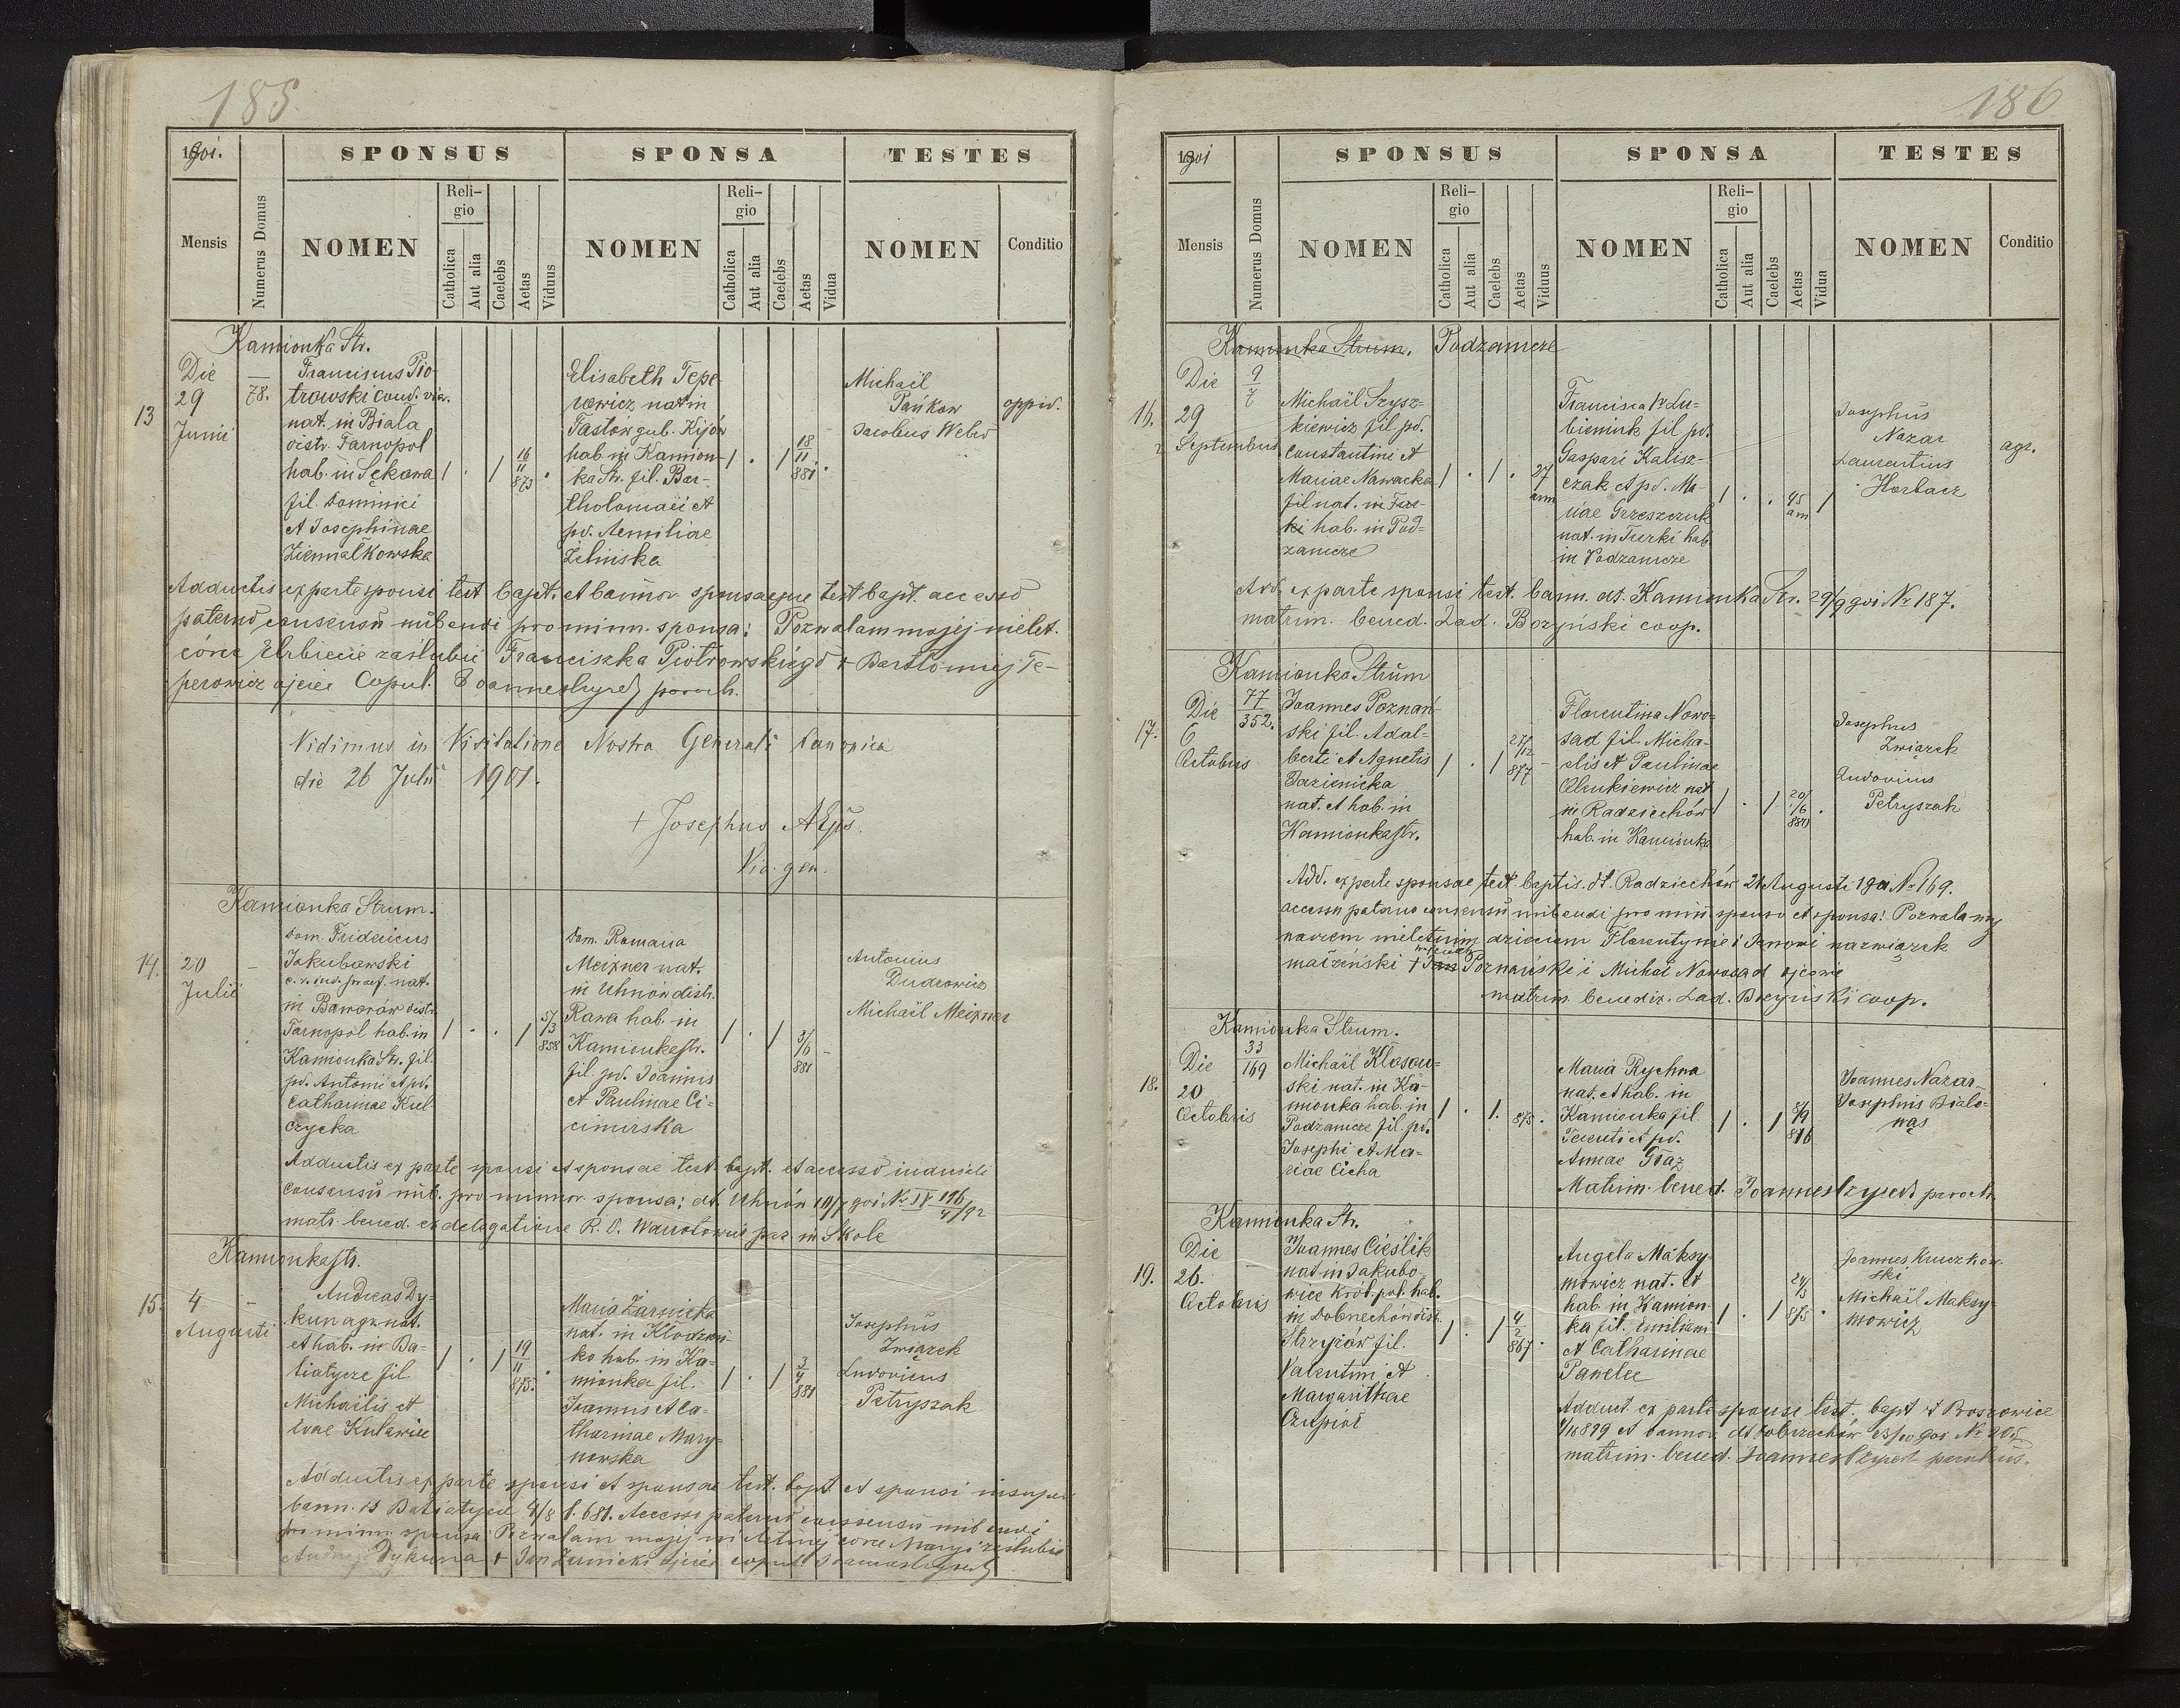 185
1901.
SPONSUS
SPONSA
TESTES
Mensis
Numerus Domus
NOMEN
Religio
Catholica
Aut alia
Caelebs
Aetas
Viduus
NOMEN
Religio
Catholica
Aut alia
Caelebs
Aetas
Vidua
NOMEN
Conditio
Kamionka Str.
13
Die
29
Junii
78.
Franciscus Pio-
trowski
nat. in Biala
distr. Tarnopol
hab. in Sękawa
fil. Dominici
et Josephinae
Ziemiałkowska
1 . 1 16/11 873 .
Elisabeth Tepe-
rowicz nat in
Fastów gub. Kijów
hab. in Kamion-
ka Str. fil. Bar-
tholomaei et
pd. Aemiliae
Zelinska
1 . 1 18/11 881 .
Michaël
Pańkow
Jacobus Weber
oppid.
Adductis ex parte sponsi test bapt. et bannor sponsaeque test bapt. accesso
paterno consensu nubendi pro minn. sponsa: Pozwalam mojej nielet.
córce Elżbiecie zaślubić Franciszka Piotrowskiego + Bartłomiej Te-
perowicz ojciec Copul. Joannes paroch.
Vidimus in Visitatione Nostra Generali Canonica
die 26 Julii 1901.
+ Josephus AEpus.
Vic. gen.
Kamionka Strum.
14.
20
Julii
Dom. Fridericus
Jakubowski
nat.
in Baworów distr.
Tarnopol hab. in
Kamionka Str. fil.
pd. Antonii et pd.
Catharinae Kul-
czycka
1 . . 1 5/3 858
Dom. Romana
Meixner nat.
in Uhnów distr.
Rawa hab. in
Kamionka str.
fil. pd. Joannis
et Paulinae Ci-
cimirska
1 . 1 3/6 881 -
Antonius
Dudrowicz
Michaël Meixner
Adductis ex parte sponsi et sponsae test. bapt. et accesso
consensu nub. pro minnor. sponsa: dt. Uhnów
matr. bened. ex delegatione R. D. par in Skole
Kamionka str.
15.
4
Augusti
Andreas Dy-
kun agr. nat.
et hab. in Ba-
tiatycze fil
Michaëlis et
Evae Kutawiec
1 . 1 19/11 875. .
Maria Żarnicka
nat. in Kłodzien-
ko hab. in Ka-
mionka fil.
Joannis et Ca-
tharinae Mary-
nowska
1 . 1 3/4 881
Josephus
Związek
Ludovicus
Petryszak
Adductis ex parte sponsi et sponsae test. bapt et sponsi insuper
bann. dt Batiatycze 4/8 l. 681. Accesso paterno consensu nubendi
pro minn. sponsa: Pozwalam mojej nieletniej córce Maryi zaślubić
Andrzeja Dykuna + Jan Żarnicki ojciec copul. Joannes
186
1901
SPONSUS
SPONSA
TESTES
Mensis
Numerus Domus
NOMEN
Religio
Catholica
Aut alia
Caelebs
Aetas
Viduus
NOMEN
Religio
Catholica
Aut alia
Caelebs
Aetas
Vidua
NOMEN
Conditio
Kamionka Strum. Podzamcze
16.
Die
29
Septembris
9/7
Michaël Szysz-
kiewicz fil pd.
Constantini et
Mariae Nawacka
fil nat. in Tur-
ki hab. in Pod-
zamcze
1 . 1 . 27 ann
Francisca 1° Lu-
bieniuk fil pd.
Gaspari Kalisz-
czak et pd. Ma-
riae Grzeszczuk
nat. in Turki hab
in Podzamcze
1 . . 45 ann 1
Josephus
Nazar
Laurentius
Horbacz
agr.
Add. ex parte sponsi test. bann. dt. Kamionka Str. 29/9 901 No 187.
matrim. bened. Lad. Bozynski coop.
Kamionka Strum
17.
Die
6
Octobris
77/352.
Joannes Poznań-
ski fil. Adal-
berti et Agnetis
Jazienicka
nat. et hab. in
Kamionka str.
1 . 1 27/12 877 -
Florentina Nowo-
sad fil. Micha-
elis et Paulinae
Olmkiewicz nat
in Radziechów
hab. in Kamionka
1 . 1 20/6 881 .
Josephus
Związek
Ludovicus
Petryszak
Add. ex parte sponsae test. baptis. dt. Radziechów 21 Augusti 1901 No 169.
accessu paterno consensu nubendi pro min sponso et sponsa: Pozwalamy
naszem nieletnim dzieciom Florentynie i Janowi na związek
małżeński + Jan Poznański i Michał Nowosad ojcowie
matrim benedix. Lad. Bozyński coop.
Kamionka Strum.
18.
Die
20
Octobris
33/169
Michaël Klosow-
ski nat. in Ka-
mionka hab. in
Podzamcze fil. pd.
Josephi et Ma-
riae Cicha
1 . 1. 875.
Maria Rychna
nat. et hab. in
Kamionka fil
Terenti et pd.
Annae Graz
1 . 1 8/9 876
Joannes Nazar-
Josephus Biało-
wąs
Matrim. bened. Joannes paroch
Kamionka Str.
19.
Die
26.
Octobris
Joannes Cieślik
nat in Jakubo-
wice król. pol. hab.
in Dobrzechów distr.
Strzyżów fil.
Valentini et
Margarithae
Czupiał
1 . 1 4/2 867 .
Angela Maksy-
mowicz nat. et
hab in Kamion-
ka fil. Emiliani
et Catharinae
Pawelec
1 . 1 24/3 875 .
Joannes Kruczkow-
ski
Michaël Maksy-
mowicz
Adduct. ex parte sponsi test. bapt dt Proszowice
et bannor. dt Dobrzechów No 205
matrim. bened. Joannes parochus.